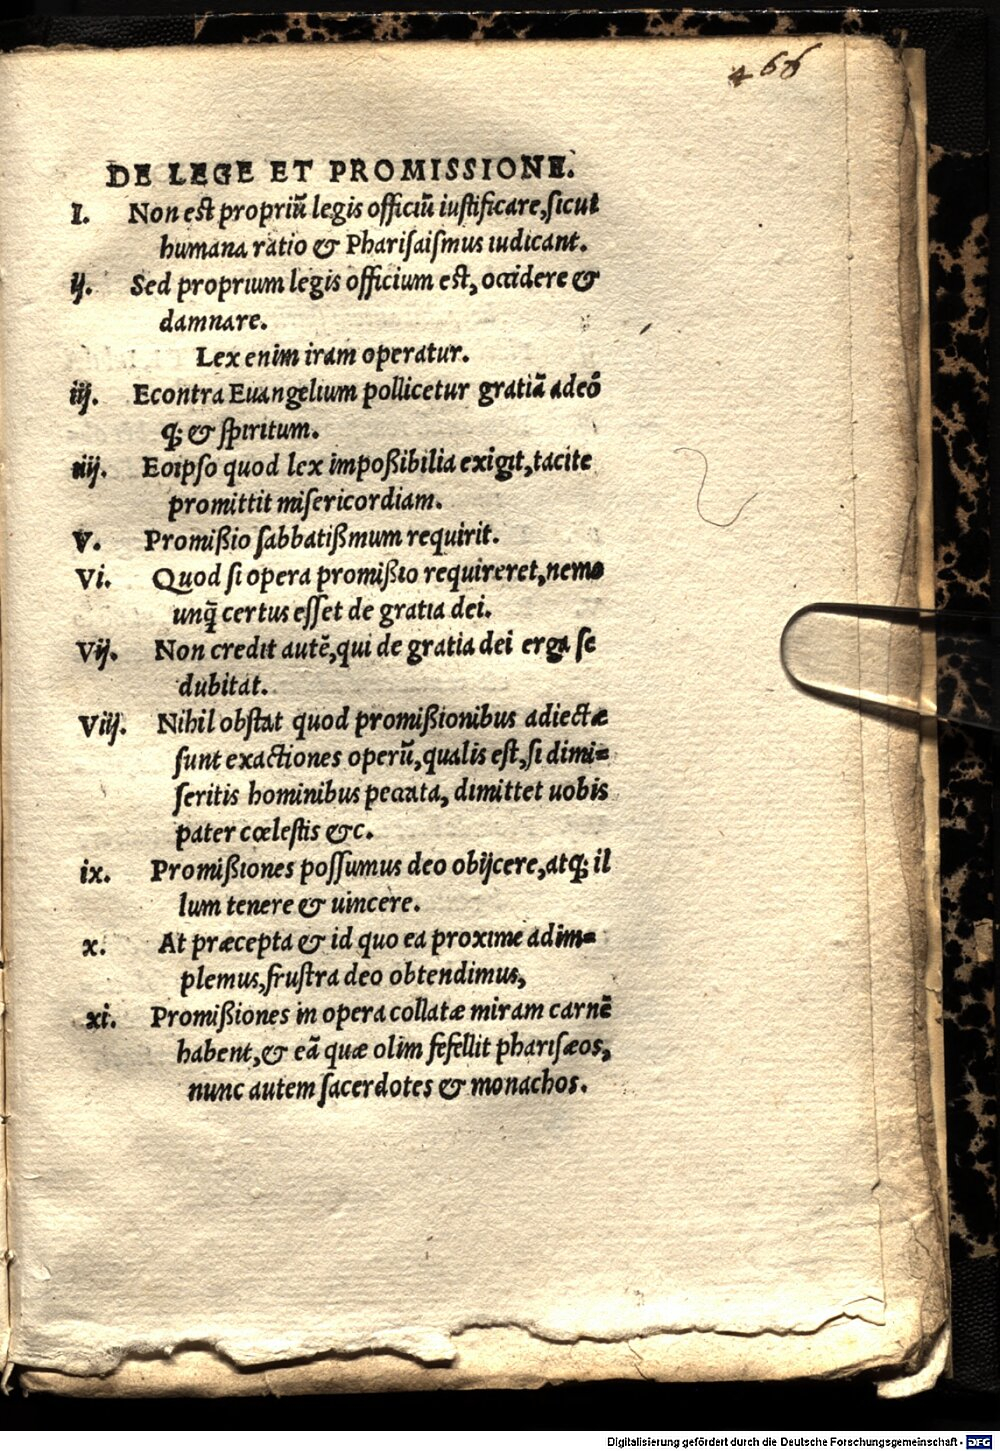 466
DE LEGE ET PROMISSIONE.
I. Non est propriū legis officiū iustificare, sicut
humana ratio & Pharisaismus iudicant.
ij. Sed proprium legis officium est, occidere &
damnare.
Lex enim iram operatur.
iij. Econtra Euangelium pollicetur gratiā adeō
q; & spiritum.
iiij. Eoipso quod lex impoßibilia exigit, tacite
promittit misericordiam.
V. Promißio sabbatißmum requirit.
Vi. Quod si opera promißio requireret, nemo
unq̄ certus esset de gratia dei.
Vij. Non credit autē, qui de gratia dei erga se
dubitat.
Viij. Nihil obstat quod promißionibus adiectæ
sunt exactiones operū, qualis est, si dimi=
seritis hominibus peccata, dimittet uobis
pater cœlestis &c.
ix. Promißiones possumus deo obijcere, atq; il
lum tenere & uincere.
x. At præcepta & id quo ea proxime adim=
plemus, frustra deo obtendimus,
xi. Promißiones in opera collatæ miram carnē
habent, & eā quæ olim fefellit pharisæos,
nunc autem sacerdotes & monachos.
Digitalisierung gefördert durch die Deutsche Forschungsgemeinschaft - DFG